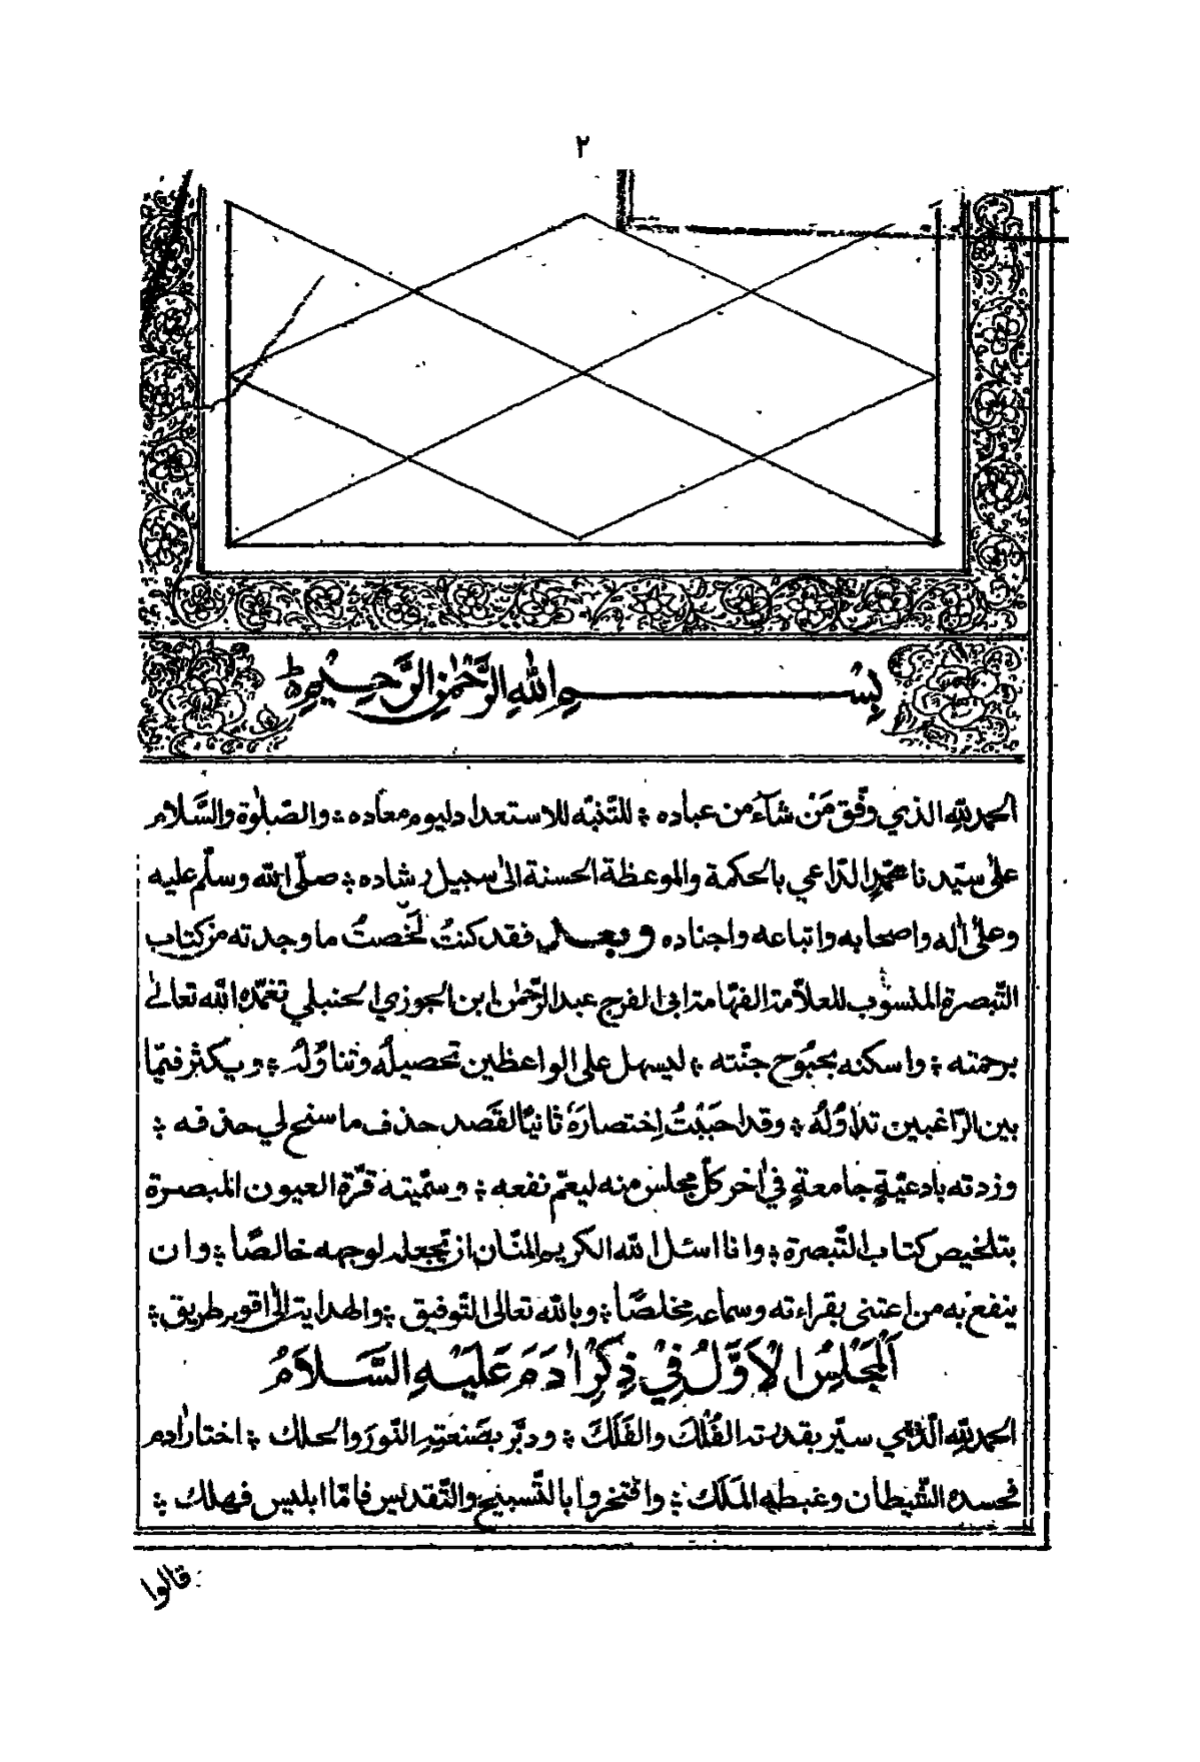 ٢
بِسْــــــمِ اللهِ الرَّحْمٰنِ الرَّحِيْمِ
الحمد لله الذي وفّق مَنْ شآء من عباده ؞ للتّنبّه للاستعداد ليوم معاده ؞ والصّلوٰة والسَّلام
علىٰ سيّدنا محمّدٍ الدّاعي بالحكمة والموعظة الحسنة الىٰ سبيل رشاده ؞ صلّى الله وسلّم عليه
وعلىٰ اٰله واصحابه واتباعه واجناده وبعــد فقد كنتُ لخّصتُ ما وجدته من كتاب
التّبصرة المنسوب للعلّامة الفهّامة ابي الفرج عبد الرّحمٰن ابن الجوزي الحنبلي تغمّده الله تعالىٰ
برحمته ؞ واسكنه بحبُوح جنّته ؞ ليسهل على الواعظين تحصيلُه وتناوُلُه ؞ ويكثر فيمَا
بين الرّاغبين تداوُلُهُ ؞ وقد احبَبْتُ اِختصارَهُ ثانيًا لقصد حذف ما سنح لي حذفه ؞
وزدته بادعيّةٍ جامعةٍ في اٰخر كلّ مجلس منه ليعمّ نفعه ؞ وسمّيته قرّة العيون المبصرة
بتلخيص كتاب التّبصرة ؞ وانا اسئل الله الكريم المنّان ان يّجعله لوجهه خالصًا ؞ وان
ينفع به من اعتنى بقراءته وسماعه مخلصًا ؞ وبالله تعالى التّوفيق ؞ والهداية الىٰ اقوم طريق ؞
اَلْمَجْلِسُ الْاَوَّلُ فِيْ ذِكْرِ اٰدَمَ عَلَيْهِ السَّلَامُ
الحمد لله الّذي سيّر بقدرته الفُلْكَ والفَلَكَ ؞ ودبّر بصَنعتِهِ النّورَ والحلك ؞ اختار اٰدم
فحسده الشّيطان وغبطه المَلَك ؞ وافتخروا بالتّسبيح والتّقديس فامّا ابليس فهلك ؞
قالوا